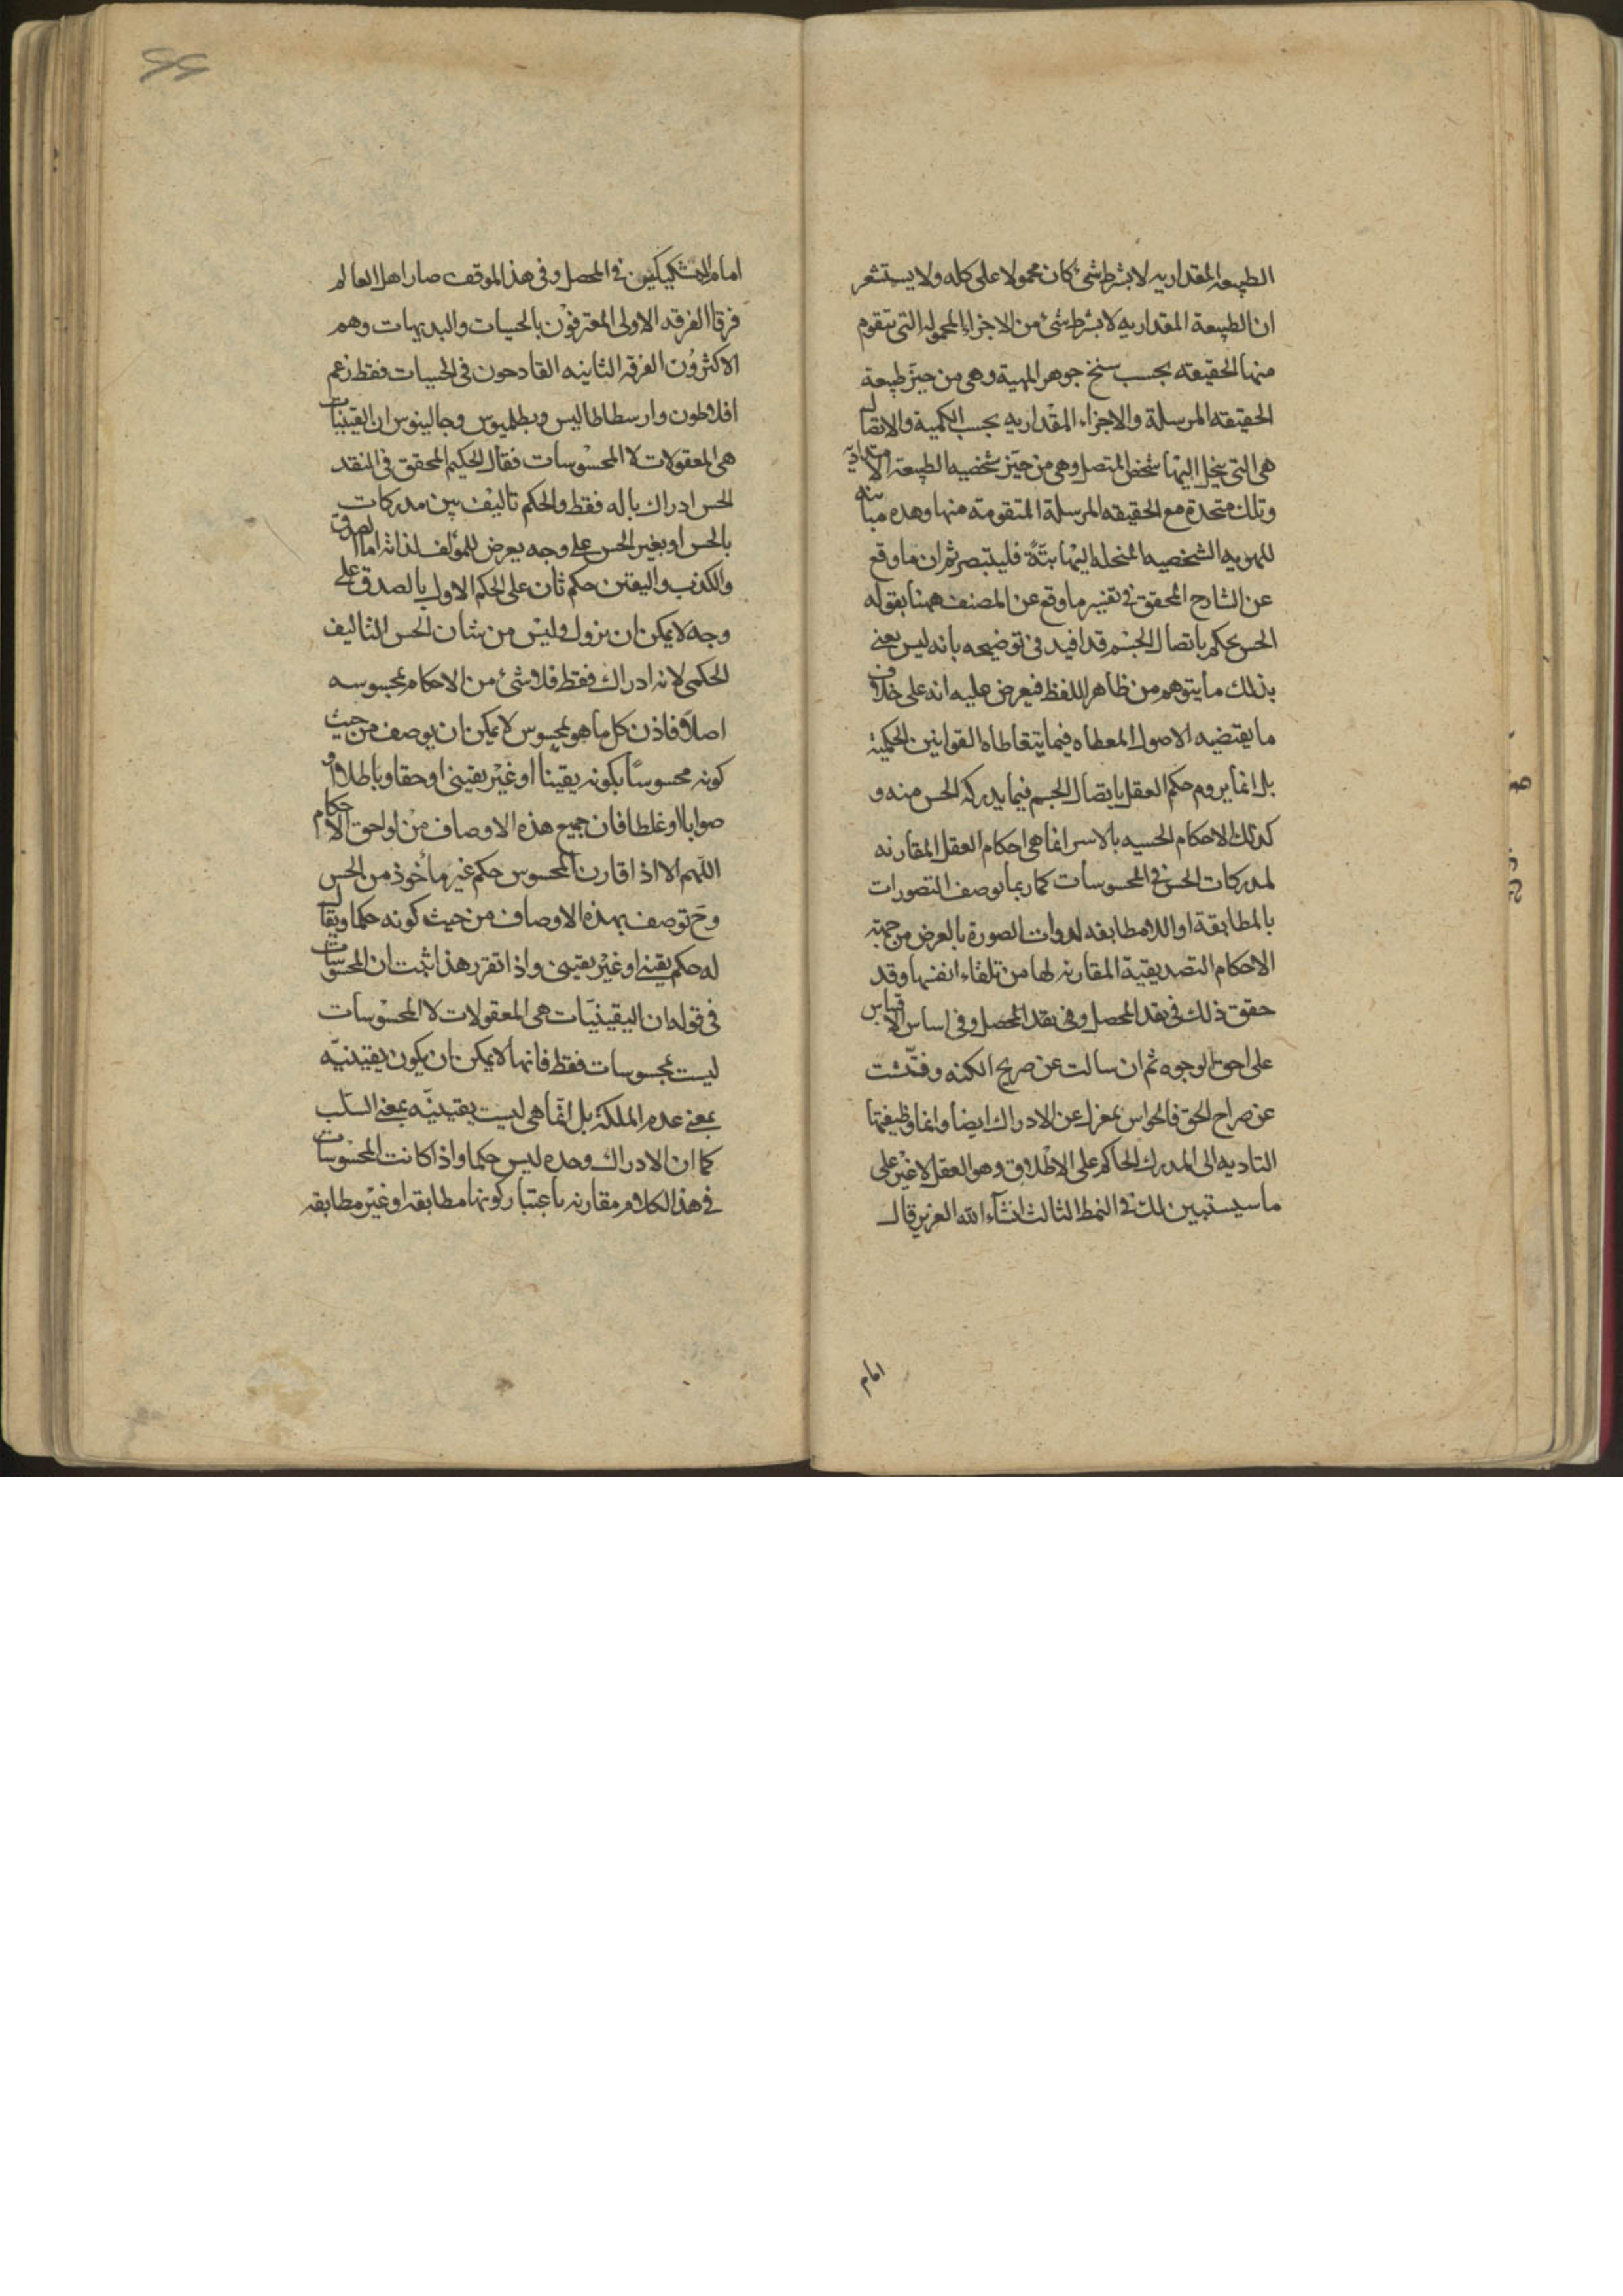 الطبيعه المقداريه لا بشرط شئ كان محمولا على كله ولا يستشعر
ان الطبيعة المقداريه لا بشرط شئ من الاجزاء المحموله التى تتقوم
منها الحقيقه بحسب سنخ جوهر المهية وهى من حيّز طبيعة
الحقيقه المرسلة والاجزاء المقداريه بحسب الكمية والاتصال
هى التى ينحل اليها شخص المتصل وهى من حيّز شخصيه الطبيعة الامتدادية
وتلك متحدة مع الحقيقه المرسلة المتقومة منها وهذه مباينه
للهويه الشخصيه المنحله اليها بتّةً فليتبصر ثم ان ما وقع
عن الشارح المحقق فى تفسير ما وقع عن المصنف ههنا بقوله
الحس يحكم باتصال الجسم قد افيد فى توضيحه بانه ليس يعنى
بذلك ما يتوهم من ظاهر اللفظ فيعرض عليه انه على خلاف
ما يقتضيه الاصول المعطاه فيما يتعاطاه القوانين الحكمية
بل انما يروم حكم العقل باتصال الجسم فيما يدركه الحس منه و
كذلك الاحكام الحسيه بالاسر انما هى احكام العقل المقارنه
لمدركات الحس فى المحسوسات كما ربما توصف التصورات
بالمطابقة او اللامطابقه لذوات الصورة بالعرض من جهته
الاحكام التصديقية المقارنه لها من تلقاء انفسها وقد
حقق ذلك فى نقد المحصل وفى نقد المحصل وفى اساس الاقتباس
على احق الوجوه ثم ان سالت عن صريح الكنه وفتّشت
عن صراح الحق فالحواس بمعزل عن الادراك ايضا وانما وظيفتها
التاديه الى المدرك الحاكم على الاطلاق وهو العقل لا غير على
ما سيستبين لك فى النمط الثالث انشآء الله العزيز قال
امام
امام المشككين فى المحصل وفى هذا الموقف صار اهل العالم
فرقا الفرقه الاولى المعترفون بالحسيات والبديهيات وهم
الاكثرون الفرقه الثانيه القادحون فى الحسيات فقط زعم
افلاطون وارسطاطاليس وبطلميوس وجالينوس ان اليقينيات
هى المعقولات لا المحسوسات فقال الحكيم المحقق فى النقد
الحس ادراك باله فقط والحكم تاليف بين مدركات
بالحس او بغير الحس على وجه يعرض للمؤلف لذاته اما الصدق
والكذب واليقين حكم ثان على الحكم الاول بالصدق على
وجه لا يمكن ان يزول وليس من شان الحس التاليف
الحكمى لانه ادراك فقط فلا شئ من الاحكام بمحسوسه
اصلا فاذن كل ما هو بمحسوس لا يمكن ان يوصف من حيث
كونه محسوسًا بكونه يقينا او غير يقينى او حقا او باطلا او
صوابا او غلطا فان جميع هذه الاوصاف من لواحق الاحكام
اللّهم الا اذا قارن المحسوس حكم غير مأخوذ من الحس
وح توصف بهذه الاوصاف من حيث كونه حكما ويقال
له حكم يقينى او غير يقينى واذا تقرر هذا ثبت ان المحسوسات
فى قوله ان اليقينيّات هى المعقولات لا المحسوسات
ليست بمحسوسات فقط فانها لا يمكن ان يكون يقينيّه
بمعنى عدم الملكة بل انما هى ليست يقينيّه بمعنى السّلب
كما ان الادراك وحده ليس حكما واذا كانت المحسوسات
فى هذا الكلام مقارنه باعتبار كونها مطابقه او غير مطابقه